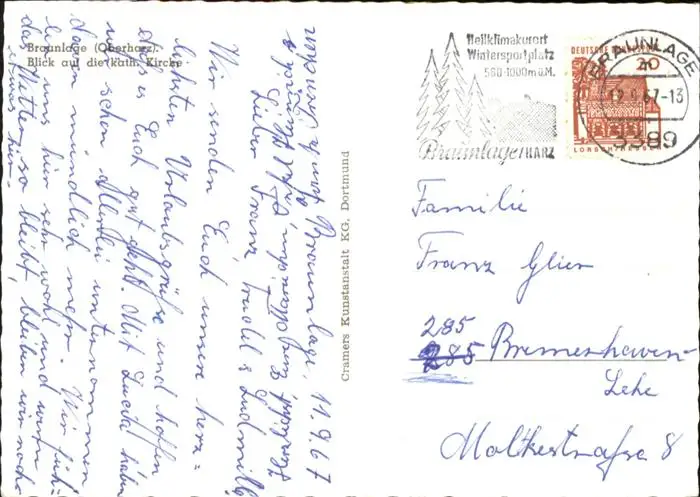 Braunlage (Oberharz).
Blick auf die kath. Kirche
Braunlage, 11.9.67
Lieber Franz, Traudel & Ludmilla
Wir senden Euch unsere herz=
lichsten Urlaubsgrüße und hoffen
daß es Euch gut geht. Mit haben
wir schon allerlei unternommen
davon mündlich mehr. Wir füh=
len uns hier sehr wohl und wenn
das Wetter so bleibt, bleiben wir noch
etwas hier.
Cramers Kunstanstalt KG, Dortmund
Heilklimakurort
Wintersportplatz
560-1000m ü.M.
Braunlage HARZ
DEUTSCHE BUNDESPOST
20
LORSCH/HESSEN
BRAUNLAGE
12.9.67-13
3389
Familie
Franz Glier
285
285 Bremerhaven-
Lehe
Moltkestraße 8